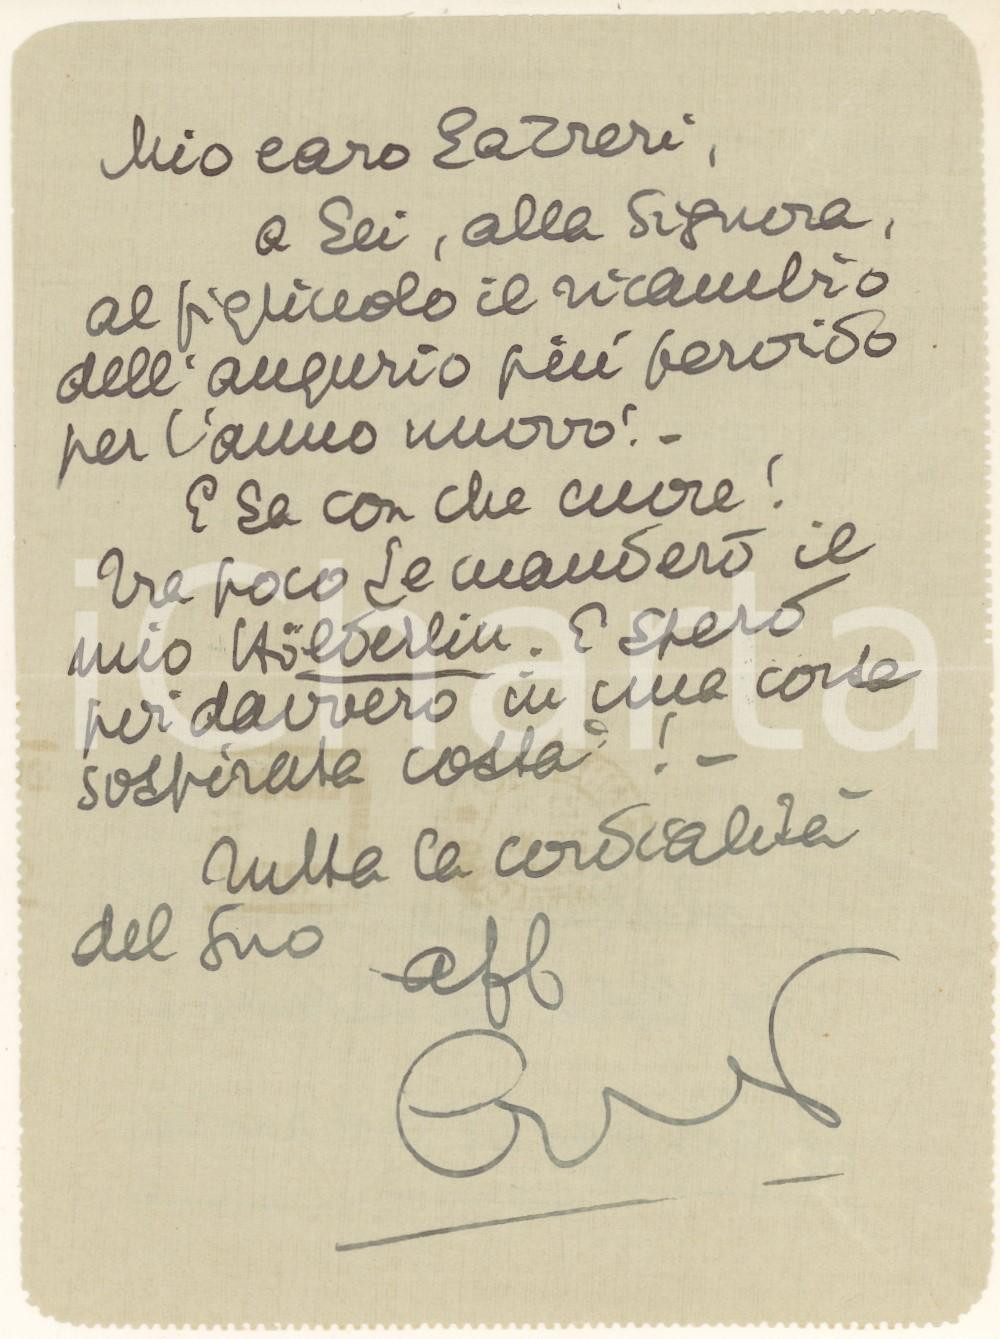 Mio caro Lattreri,
a Lei, alla Signora,
al figliuolo il ricambio
dell'augurio più fervido
per l'anno nuovo! -
E Sa con che cuore!
Tra poco Le manderò il
mio Hölderlin. E spero
poi davvero in una corsa
sospirata costà! -
Tutta la cordialità
del Suo aff
iCharta